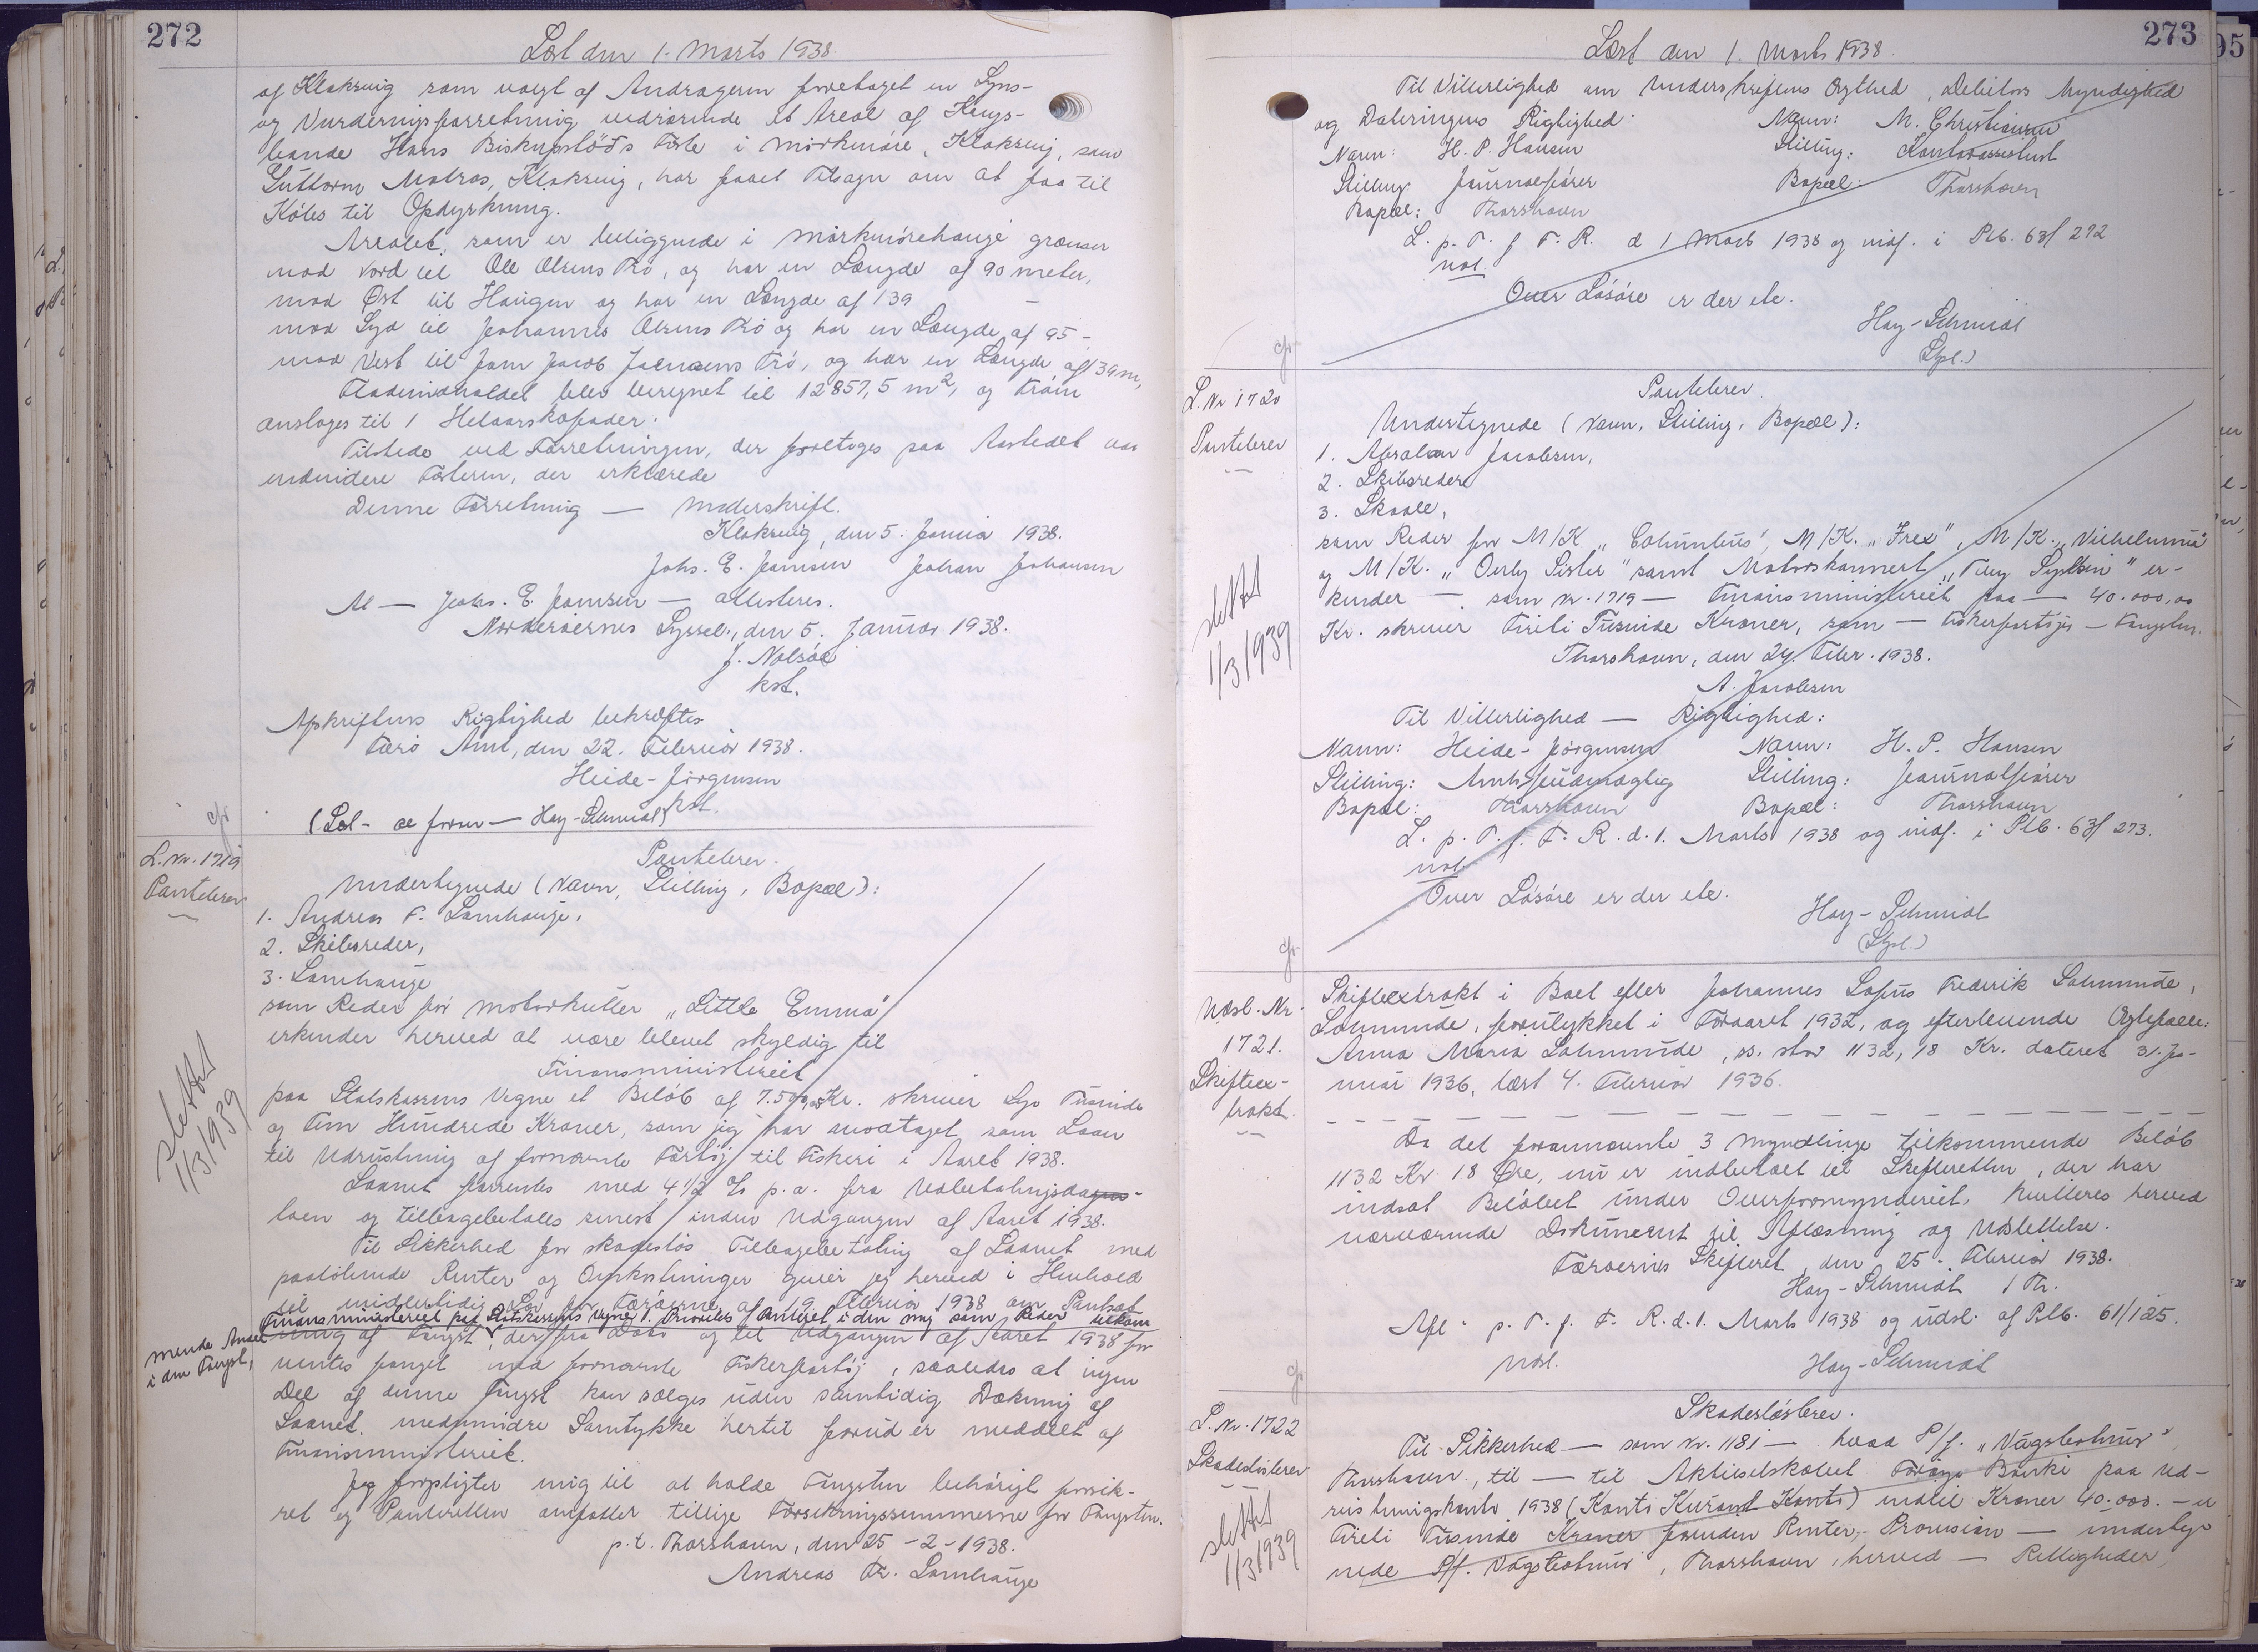 272
Læst den 1. Marts 1938.
af Klaksvig som valgt af Andrageren foretaget en Syns-
og Vurderingsforretning vedrørende et Areal af Kongs-
bonde Hans Biskupstøð's Fæste i Mørkmóre, Klaksvig, som
Guttorm Matras, Klaksvig, har faaet Tilsagn om at faa til
Købs til Opdyrkning.
Arealet, som er beliggende i Mørkmórehauge grænser
mod Nord til Ole Olsens Trø, og har en Længde af 90 meter,
mod Øst til Haugen og har en Længde af 139 —
mod Syd til Johannes Olsens Trø og har en Længde af 95 -
mod Vest til Jam Jacob Joensens Trø, og har en Længde af 139 m,
Fladeindholdet blev beregnet til 12857,5 m², og Trøen
ansloges til 1 Helaarskofoder.
Tilstede ved Forretningen, der foretoges paa Aastedet var
endvidere Fæsteren, der erklærede
Denne Forretning — Underskrift.
Klaksvig, den 5. Januar 1938.
Johs. E. Joensen Johan Johansen
At — Johs. E. Joensen — attesteres.
Norderøernes Syssel, den 5. Januar 1938.
J. Nolsøe
kst.
Afskriftens Rigtighed bekræftes
Færø Amt, den 22. Februar 1938.
Heide-Jørgensen
kst.
(Læst - as foran — Hay-Schmidt)
L. Nr. 1719
Pantebrev
Pantebrev.
Undertegnede (Navn, Stilling, Bopæl):
1. Andreas F. Lamhauge,
2. Skibsreder,
3. Lamhauge
som Reder for Motorkutter „Little Emma"
erkender herved at være blevet skyldig til
Finansministeriet
paa Statskassens Vegne et Beløb af 7.500,00 Kr. skriver Syv Tusinde
og Fem Hundrede Kroner, som jeg har modtaget som Laan
til Udrustning af fornævnte Fartøj til Fiskeri i Aaret 1938.
Laanet forrentes med 4½ % p.a. fra Udbetalingsdagens-
loen og tilbagebetales senest inden Udgangen af Aaret 1938.
Til Sikkerhed for skadesløs Tilbagebetaling af Laanet med
paaløbende Renter og Omkostninger giver jeg herved i Henhold
til midlertidig Lov for Færøerne af 19. Februar 1938 om Pantsæt
Finansministeriet paa Statskassens Vegne 1. Prioritets Panteret i den mig som Reder tilkom
mende Andel
i den Fangst,
ning af Fangst, der fra Dato og til Udgangen af Aaret 1938 for
ventes fanget med fornævnte Fiskerfartøj, saaledes at ingen
Del af denne Fangst kan sælges uden samtidig Dækning af
Laanet, medmindre Samtykke hertil forud er meddelt af
Finansministeriet.
Jeg forpligter mig til at holde Fangsten behørigt forsik-
ret og Panteretten omfatter tillige Forsikringssummerne for Fangsten.
p.t. Thorshavn, den 25 - 2 - 1938.
Andreas Fr. Lamhauge
slettet
1/3 1939
273
Læst den 1. Marts 1938.
Til Vitterlighed om Underskriftens Ægthed, Debitors Myndighed
og Dateringens Rigtighed.
Navn: H. P. Hansen Navn: M. Christiansen
Stilling: Journalfører Stilling: Kontorassistent
Bopæl: Thorshavn Bopæl: Thorshavn
L. p. T. f. F. R. d. 1 Marts 1938 og indf. i Ptb. 63f 272
Udl.
Over Løsøre er der etc.
Hay-Schmidt
(Stpl.)
L. Nr 1720
Pantebrev
Pantebrev
Undertegnede (Navn, Stilling, Bopæl):
1. Absalon Jacobsen,
2. Skibsreder
3. Skaale,
som Reder for M/K „Columbus", M/K. „Frex", M/K. „Vilhelmina"
og M/K. „Overby Sister" samt „ " er-
kender — som Nr. 1719 — Finansministeriet paa — 40.000,00
Kr. skriver Fireti Tusinde Kroner, som — Fiskerfartøjs — Fangsten.
Thorshavn, den 24. Febr. 1938.
A. Jacobsen
Til Vitterlighed — Rigtighed:
Navn: Heide-Jørgensen Navn: H. P. Hansen
Stilling: Amtsfuldmægtig Stilling: Journalfører
Bopæl: Thorshavn Bopæl: Thorshavn
L. p. T. f. F. R. d. 1. Marts 1938 og indf. i Ptb. 63f 273.
Udl.
Over Løsøre er der etc.
Hay-Schmidt
(Stpl.)
slettet
1/3 1939
Udsl. Nr.
1721.
Skifteex-
trakt.
Skifteextrakt i Boet efter Johannes Sofus Frederik Salmunde,
Salmunde, forulykket i Foraaret 1932, og efterlevende Ægtefælle:
Anna Maria Salmunde, ss. stor 1132,18 Kr. dateret 31. Ja-
nuar 1936, læst 4. Februar 1936.
Da det forannævnte 3 Myndlinge tilkommende Beløb
1132 Kr. 18 Øre, nu er indbetalt til Skifteretten, der har
indsat Beløbet under Overformynderiet, kvitteres herved
nærværende Dokument til Aflæsning og Udslettelse.
Færøernes Skifteret, den 25. Februar 1938.
Hay-Schmidt 1 Kr.
Afl. p. T. f. F. R. d. 1. Marts 1938 og udsl. af Ptb. 61/125.
Udl. Hay-Schmidt
L. Nr. 1722
Skadesløsbrev
Skadesløsbrev.
Til Sikkerhed — som Nr. 1181 — hvad P/f. „Vágsbotnur",
Thorshavn, til — til Aktieselskabet Føroya Banki paa Ud-
rustningskonto 1938 (Konto Kurant Konto) indtil Kroner 40.000.— er
Fireti Tusinde Kroner foruden Renter, Provision — underteg
nede P/f. Vágsbotnur, Thorshavn, herved — Rettigheder,
slettet
1/3 1939